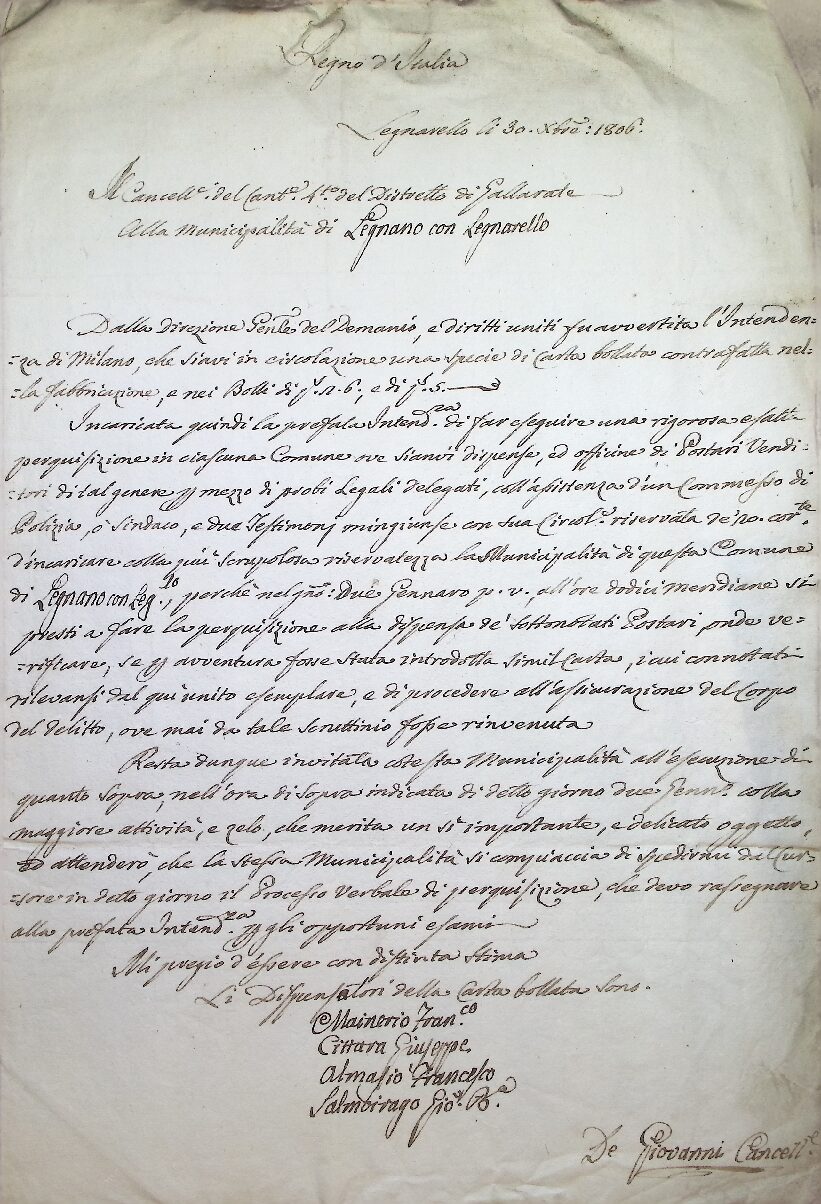 Regno d'Italia
Legnarello li 30. Xbre: 1806.
Il Cancelle. del Cante. 4to. del Distretto di Gallarate
Alla Municipalità di Legnano con Legnarello
Dalla Direzione Genle. del Demanio, e diritti uniti fu avvertita l'Intenden-
=za di Milano, che siavi in circolazione una specie di Carta bollata contrafatta nel-
=la fabbricazione, e nei Bolli di
Incaricata quindi la prefata Intendza. di far eseguire una rigorosa esatta
perquisizione in ciascuna Comune ove sianvi dispense, ed officine di Postari Vendi-
=tori di tal genere per mezzo di probi Legali delegati, coll'assistenza d'un Commesso di
Polizia, o Sindaco, e due Testimonj mingiunse con sua Circole. riservata de' 20. corte.
d'incaricare colla più scrupolosa riservatezza la Municipalità di questa Comune
di Legnano con Leg.lo, perchè nel gno: Due Gennaro p. v. all'ore dodici meridiane si
presti a fare la perquisizione alla dispensa de' sottonotati Postari, onde ve-
=rificare, se per avventura fosse stata introdotta simil Carta, i cui connotati
rilevansi dal qui unito esemplare, e di procedere all'assicurazione del Corpo
del delitto, ove mai da tale scruttinio fosse rinvenuta
Resta dunque invitata cotesta Municipalità all'esecuzione di
quanto sopra, nell'ora di sopra indicata di detto giorno due Genno. colla
maggiore attività, e zelo, che merita un sì importante, e delicato oggetto,
ed attenderò, che la stessa Municipalità si compiaccia di spedirmi dal Cur-
=sore in datto giorno il Processo Verbale di perquisizione, che devo rassegnare
alla prefata Intendza. per gli opportuni esami
Mi pregio d'éssere con distinta stima
Li Dispensatori della Carta bollata sono.
Mainerio Fran.co
Cittara Giuseppe
Almasio Francesco
Salmoirago Gio. Ba.
De Giovanni Cancelle.